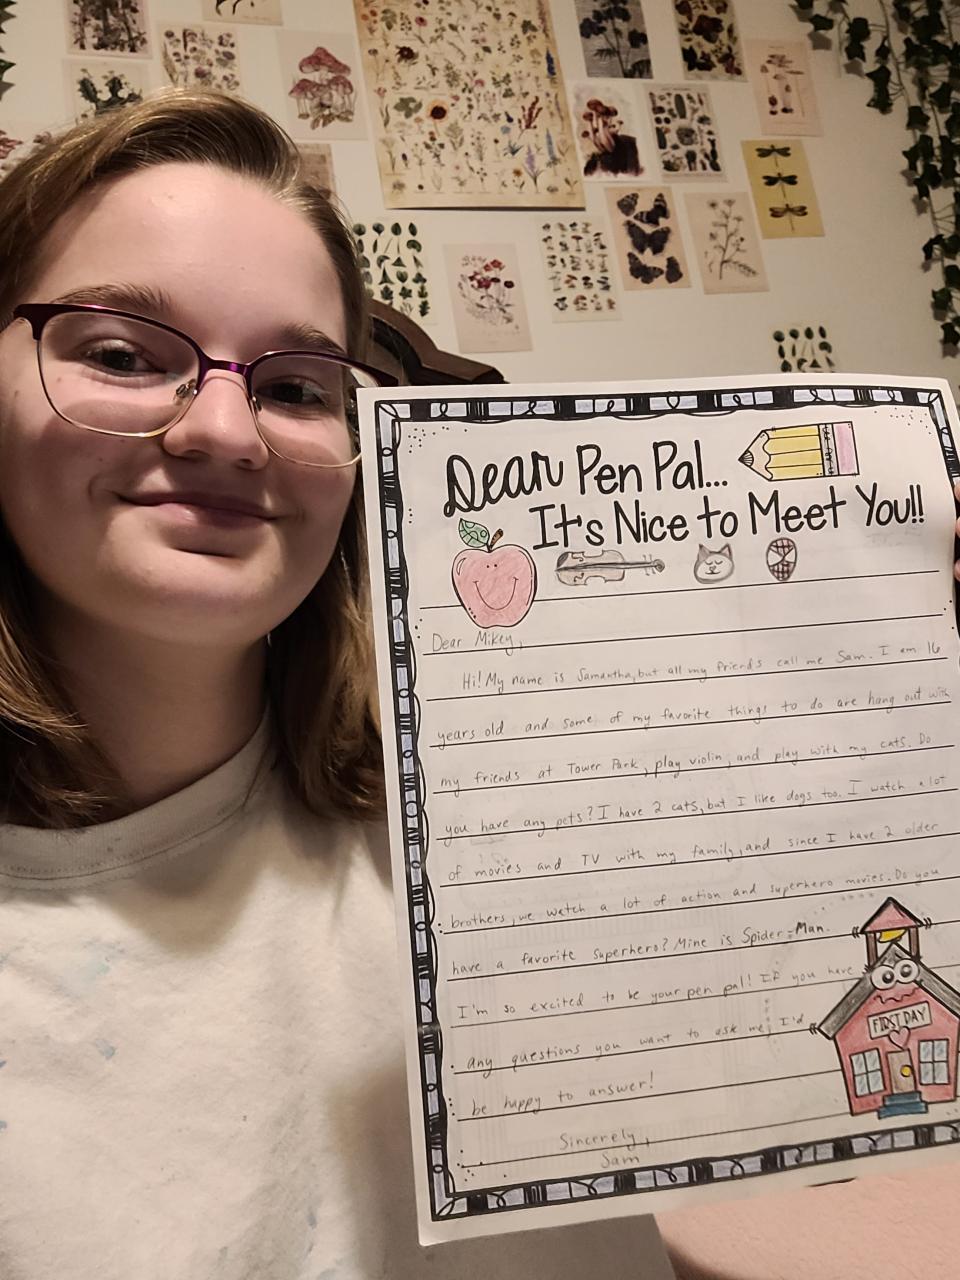 Dear Pen Pal...
It's Nice to Meet You!!
Dear Mikey,
Hi! My name is Samantha, but all my friends call me Sam. I am 16
years old and some of my favorite things to do are hang out with
my friends at Tower Park, play violin, and play with my cats. Do
you have any pets? I have 2 cats, but I like dogs too. I watch a lot
of movies and TV with my family, and since I have 2 older
brothers, we watch a lot of action and superhero movies. Do you
have a favorite superhero? Mine is Spider-Man.
I'm so excited to be your pen pal! If you have
any questions you want to ask me, I'd
be happy to answer!
Sincerely,
Sam
FIRST DAY